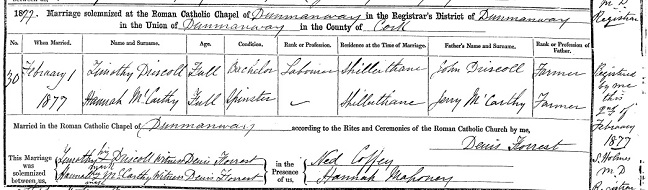 1877. Marriage solemnized at the Roman Catholic Chapel of Dunmanway in the Registrar's District of Dunmanway
in the Union of Dunmanway in the County of Cork
No. When Married. Name and Surname. Age. Condition. Rank or Profession. Residence at the Time of Marriage. Father's Name and Surname. Rank or Profession of Father.
30 February 1 Timothy Driscoll Full Bachelor Labourer Shillerthane John Driscoll Farmer
1877 Hannah McCarthy Full Spinster Shillerthane Jerry McCarthy Farmer
Married in the Roman Catholic Chapel of Dunmanway according to the Rites and Ceremonies of the Roman Catholic Church by me,
Denis Forrest
This Marriage was solemnized between us,
Timothy Driscoll Witness Denis Forrest
Hannah McCarthy Witness Denis Forrest
in the Presence of us,
Ned Coffey
Hannah Mahoney
M D
Registrar
Registered
by me
this
2nd of
February
1877
S. Holmes
M D
Registrar